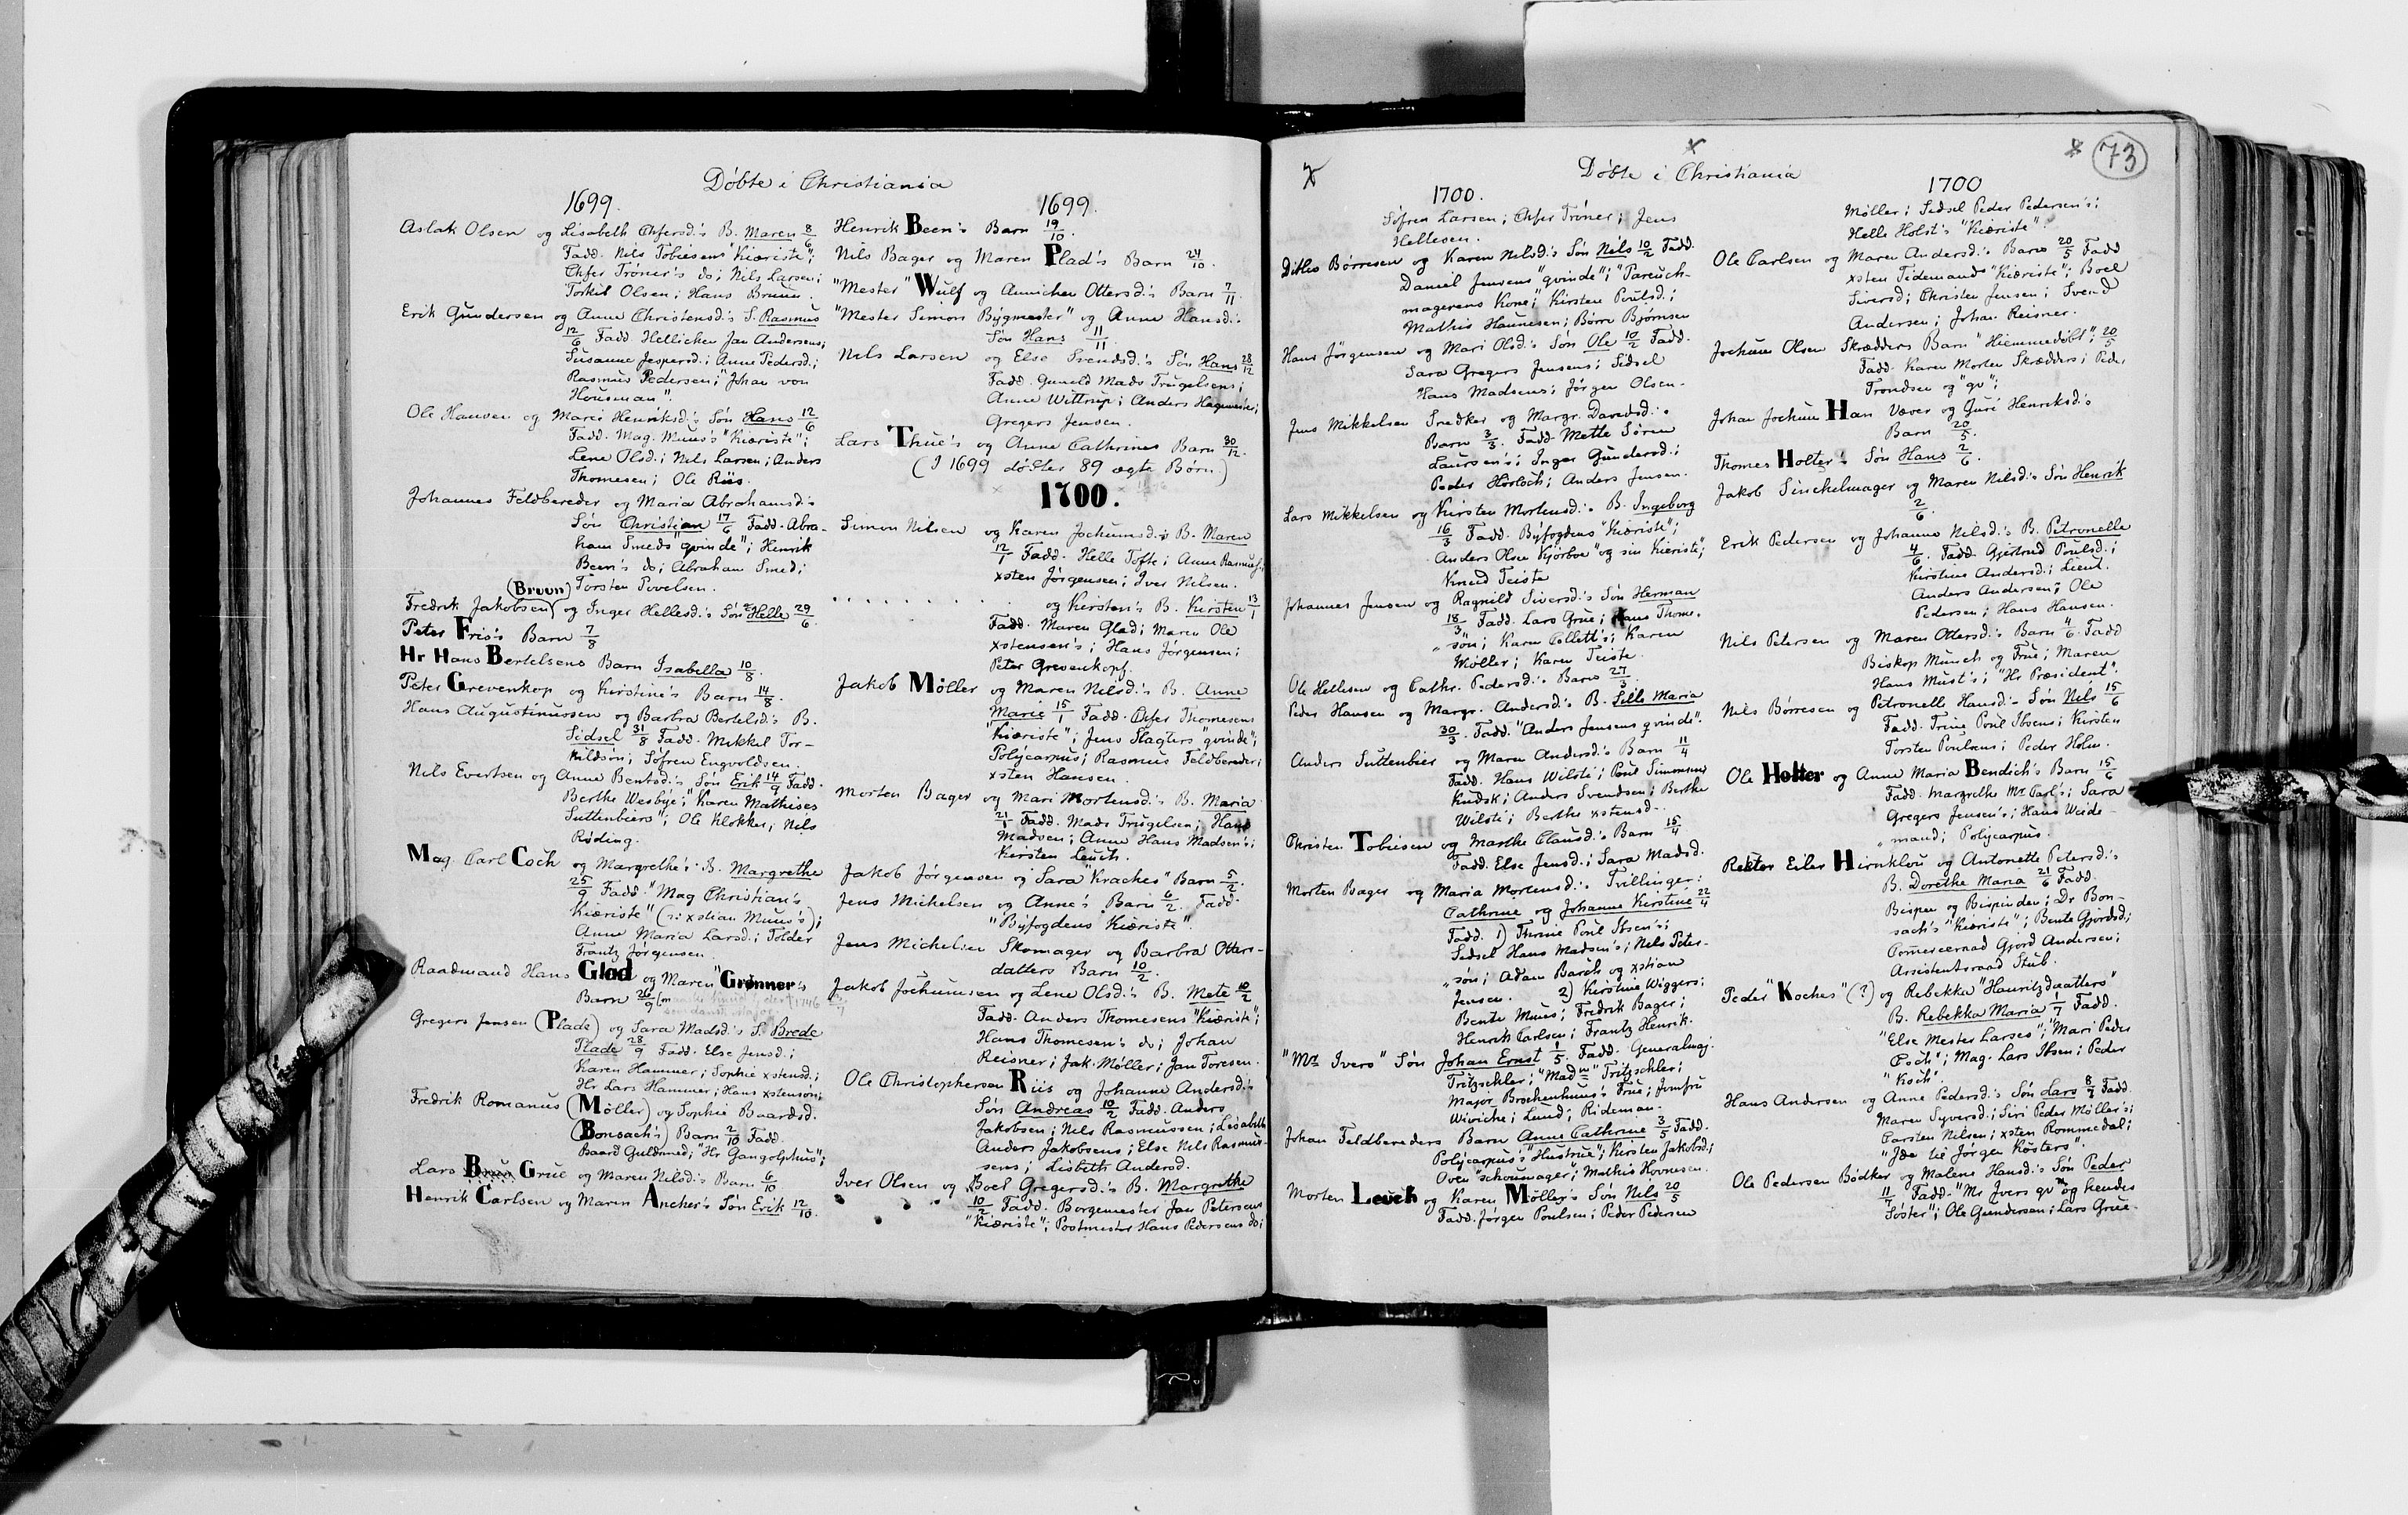 Döbte i Christiania
1699.
Aslak Olsen og Lisabeth Chfersd.'s B. Maren 8/6
Fadd. Nils Tobiesens "Kiæriste";
Chfer Tröner's do; Nils Larsen;
Torkil Olsen; Hans Bruun.
Erik Gundersen og Anne Christensd.'s S. Rasmus
12/6 Fadd Hellichen Jan Andersens;
Susanne Jespersd.; Anne Pedersd.;
Rasmus Pedersen; "Johan von
Housman".
Ole Hansen og Marie Henriksd.'s Sön Hans 12/6
Fadd. Mag. Muus's "Kiæriste";
Lene Olsd.; Nils Larsen; Anders
Thomesen; Ole Riis.
Johannes Feldbereder og Maria Abrahamsd.'s
Sön Christian 17/6 Fadd. Abra-
ham Smeds "qvinde"; Henrik
Been's do; Abraham Smed;
Torsten Povelsen.
Fredrik Jakobsen (Bruun) og Inger Hellesd.'s Sön Helle 29/6.
Peter Fris's Barn 7/8
Hr Hans Bertelsens Barn Isabella 10/8.
Peter Grevenkop og Kirstine's Barn 14/8.
Hans Augustinussen og Barbra Bertelsd.'s B.
Sidsel 31/8 Fadd. Mikkel Tor-
kildsön; Söfren Engvoldsen.
Nils Evertsen og Anne Bentsd.'s Sön Erik 14/9 Fadd.
Berthe Wesbye; "Karen Mathises
Suttenbiers"; Ole Klokker; Nils
Röding.
Mag. Carl Coch og Margrethe's B. Margrethe
25/9 Fadd. "Mag Christian's
Kiæriste" (ɔ: xstian Muus's);
Anne Maria Larsd.; Tolder
Frantz Jörgensen.
Raadmand Hans Glad og Maren "Grønner's
Barn 26/9
Gregers Jensen (Plade) og Sara Madsd.'s S. Brede
Plade 28/9 Fadd. Else Jensd.;
Karen Hammer; Sophie xstensd.;
Hr Lars Hammer; Hans xstensön;
Fredrik Romanus (Möller) og Sophie Baardsd.
(Bonsach's) Barn 2/10 Fadd.
Baard Guldsmed; "Hr Gangolphus";
Lars Grue og Maren Nilsd.'s Barn 6/10
Henrik Carlsen og Maren Ancher's Sön Erik 12/10.
1699.
Henrik Been's Barn 19/10.
Nils Bager og Maren Plad's Barn 24/10.
"Mester" Wulf og Annichen Ottersd.'s Barn 7/11
"Mester Simon Bygmester" og Anne Hansd.'s
Sön Hans 11/11.
Nils Larsen og Else Svendsd.'s Sön Hans 28/12
Fadd. Gunild Mads Trugelsens;
Anne Wittrup; Anders Hagemeier;
Gregers Jensen.
Lars Thue's og Anne Cathrines Barn 30/12.
(I 1699 döbtes 89 ægte Börn.)
1700.
Simon Nilsen og Karen Jochumsd.'s B. Maren
12/1 Fadd. Helle Tofte; Anne Rasmus's;
xsten Jörgensen; Iver Nilsen.
. . . . . . . og Kirsten's B. Kirsten 13/1
Fadd. Maren Glad; Maren Ole
xstensen's; Hans Jörgensen;
Peter Grevenkopf.
Jakob Möller og Maren Nilsd.'s B. Anne
Marie 15/1 Fadd. Chfer Thomesens
"Kiæriste"; Jens Slagters "qvinde";
Polycarpus; Rasmus Feldbereder;
xsten Hansen.
Morten Bager og Mari Mortensd.'s B. Maria
21/1 Fadd. Mads Trugelsen; Hans
Madsen; Anne Hans Madsen's;
Kirsten Leuch.
Jakob Jörgensen og "Sara Kraches" Barn 5/2.
Jens Michelsen og Anne's Barn 6/2. Fadd.
"Byfogdens Kiæriste".
Jens Michelsen Skomager og Barbra Otters-
datters Barn 10/2.
Jakob Jochumsen og Lene Olsd.'s B. Mete 10/2
Fadd. Anders Thomesens "Kiæriste";
Hans Thomesen's do; Johan
Reisner; Jak. Möller; Jan Toresen.
Ole Christophersen Riis og Johanne Andersd.'s
Sön Andreas 10/2 Fadd. Anders
Jakobsen; Nils Rasmussen; Lisabeth
Anders Jakobsens; Else Nils Rasmus-
sens; Lisbeth Andersd.
Iver Olsen og Boel Gregersd.'s B. Margrethe
10/2 Fadd. Borgemester Jan Petersens
"Kiæriste"; Postmester Hans Pedersens do;
73
Döbte i Christiania
1700.
Söfren Larsen; Chfer Tröner; Jens
Hellesen.
Ditlev Börresen og Karen Nilsd.'s Sön Nils 10/2 Fadd.
Daniel Jensens "qvinde"; "Pareuch-
magerens Kone; Kirsten Poulsd.;
Mathis Haunesen; Börre Björnsen
Hans Jörgensen og Mari Olsd.'s Sön Ole 10/2 Fadd.
Sara Gregers Jensens; Sidsel
Hans Madsens; Jörgen Olsen.
Jens Mikkelsen Snedker og Margr. Davidsd.'s
Barn 3/3. Fadd. Mette Sören
Laursen's; Inger Gundersd.;
Peder Hörloch; Anders Jensen.
Lars Mikkelsen og Kirsten Mortensd.'s B. Ingeborg
16/3 Fadd. Byfogdens "Kiæriste";
Anders Olsen Kjörboe "og sin Kiæriste";
Knud Teiste
Johannes Jensen og Ragnild Siversd.'s Sön Herman
18/3 Fadd. Lars Grue; Hans Thome-
sön; Karen Collett's; Karen
Möller; Karen Teiste.
Ole Hellesen og Cathr. Pedersd.'s Barn 27/3.
Peder Hansen og Margr. Andersd.'s B. Sille Maria
30/3. Fadd. "Anders Jensens qvinde".
Anders Suttenbier og Maren Andersd.'s Barn 11/4
Fadd. Hans Wilsti; Poul Simonsen
Kudsk; Anders Svendsen; Berthe
Wilsti; Berthe xstensd.
Christen Tobiesen og Marthe Clausd.'s Barn 15/4
Fadd. Else Jensd.; Sara Madsd.
Morten Bager og Maria Mortensd.'s Tvillinger:
Cathrine og Johanne Kirstine 22/4
Fadd. 1) Thrine Poul Ibsen's;
Sidsel Hans Madsen's; Nils Peter-
sön; Adam Barch og xstian
Jensen. 2) Kirstine Wiggers;
Bente Muus; Fredrik Bager;
Henrik Carlsen; Frantz Henrik.
"Mr Ivers" Sön Johan Ernst 1/5. Fadd. Generalmaj.
Tritzschler; "Madm" Tritzschler;
Major Brockenhuus's Frue; Jomfru
Wiviche; Lund; Rideman.
Johan Feldbereders Barn Anne Cathrine 3/5 Fadd.
Polycarpus's "Hustrue"; Kirsten Jakobsd.;
Oven "schoumager"; Mathis Hovnesen.
Morten Leuch og Karen Möller's Sön Nils 20/5
Fadd. Jörgen Poulsen; Peder Pedersen
1700
Möller; Sidsel Peder Pedersen's;
Helle Holst's "Kiæriste".
Ole Carlsen og Maren Andersd.'s Barn 20/5 Fadd
xsten Tidemands "Kiæriste"; Boel
Siversd; Christen Jensen; Svend
Andersen; Johan Reisner.
Jochum Olsen Skrædders Barn "Hiemmedöbt"; 20/5
Fadd. Karen Morten Skrædders; Peder
Trondsen og "qv";
Johan Jochum Han Væver og Guri Henriksd.'s
Barn 20/5.
Thomes Holter's Sön Hans 2/6.
Jakob Sinckelmager og Maren Nilsd.'s Sön Henrik
2/6.
Erik Pedersen og Johanne Nilsd.'s B. Petronelle
4/6. Fadd. Gjertrud Poulsd.;
Kirstine Andersd.; Lieut.
Anders Andersen; Ole
Pedersen; Hans Hansen.
Nils Petersen og Maren Ottersd.'s Barn 4/6. Fadd
Biskop Munch og Frue; Maren
Hans Must's; "Hr Præsident".
Nils Börresen og Petronelle Hansd.'s Sön Nils 15/6
Fadd. Trine Poul Ibsens; Kirsten
Torsten Poulsens; Peder Holm.
Ole Holter og Anne Maria Bendich's Barn 15/6
Fadd. Margrethe Mr Carl's; Sara
Gregers Jensen's; Hans Weide-
mand; Polycarpus.
Rektor Eiler Hirnklou og Antonette Petersd.'s
B. Dorethe Maria 21/6 Fadd.
Bispen og Bispinden; Dr Bon-
sach's "Kiæriste"; Bente Gjordsd.;
Comerceraad Gjord Andersen;
Assistentsraad Stub.
Peder "Koches" (?) og Rebekka "Hauritzdaatters"
B. Rebekka Maria 1/7 Fadd.
"Else Mester Larses"; "Mari Peder
Coch"; Mag. Lars Ibsen; Peder
"Koch".
Hans Andersen og Anne Pedersd.'s Sön Lars 8/7 Fadd.
Maren Syversd.; Siri Peder Möller's;
Carsten Nilsen; xsten Rommedal;
"Ide til Jörgen Kösters".
Ole Pedersen Bödker og Malene Hansd.'s Sön Peder
11/7 Fadd. "Mr Ivers qv og hendes
Söster"; Ole Gundersen; Lars Grue.